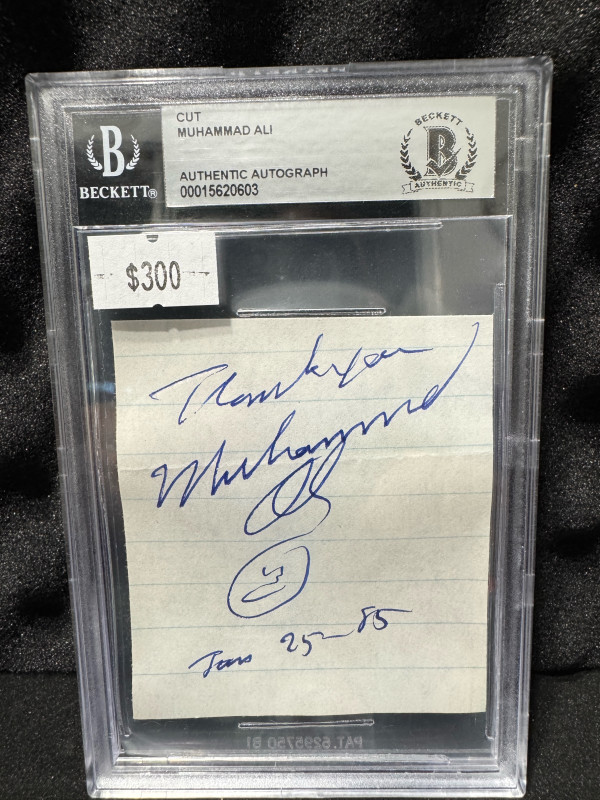 CUT
MUHAMMAD ALI
AUTHENTIC AUTOGRAPH
00015620603
B
BECKETT®
BECKETT
B
AUTHENTIC
$300
Thank you
Muhammad
Ali
Jan 25-85
PAT. 6295750 B1